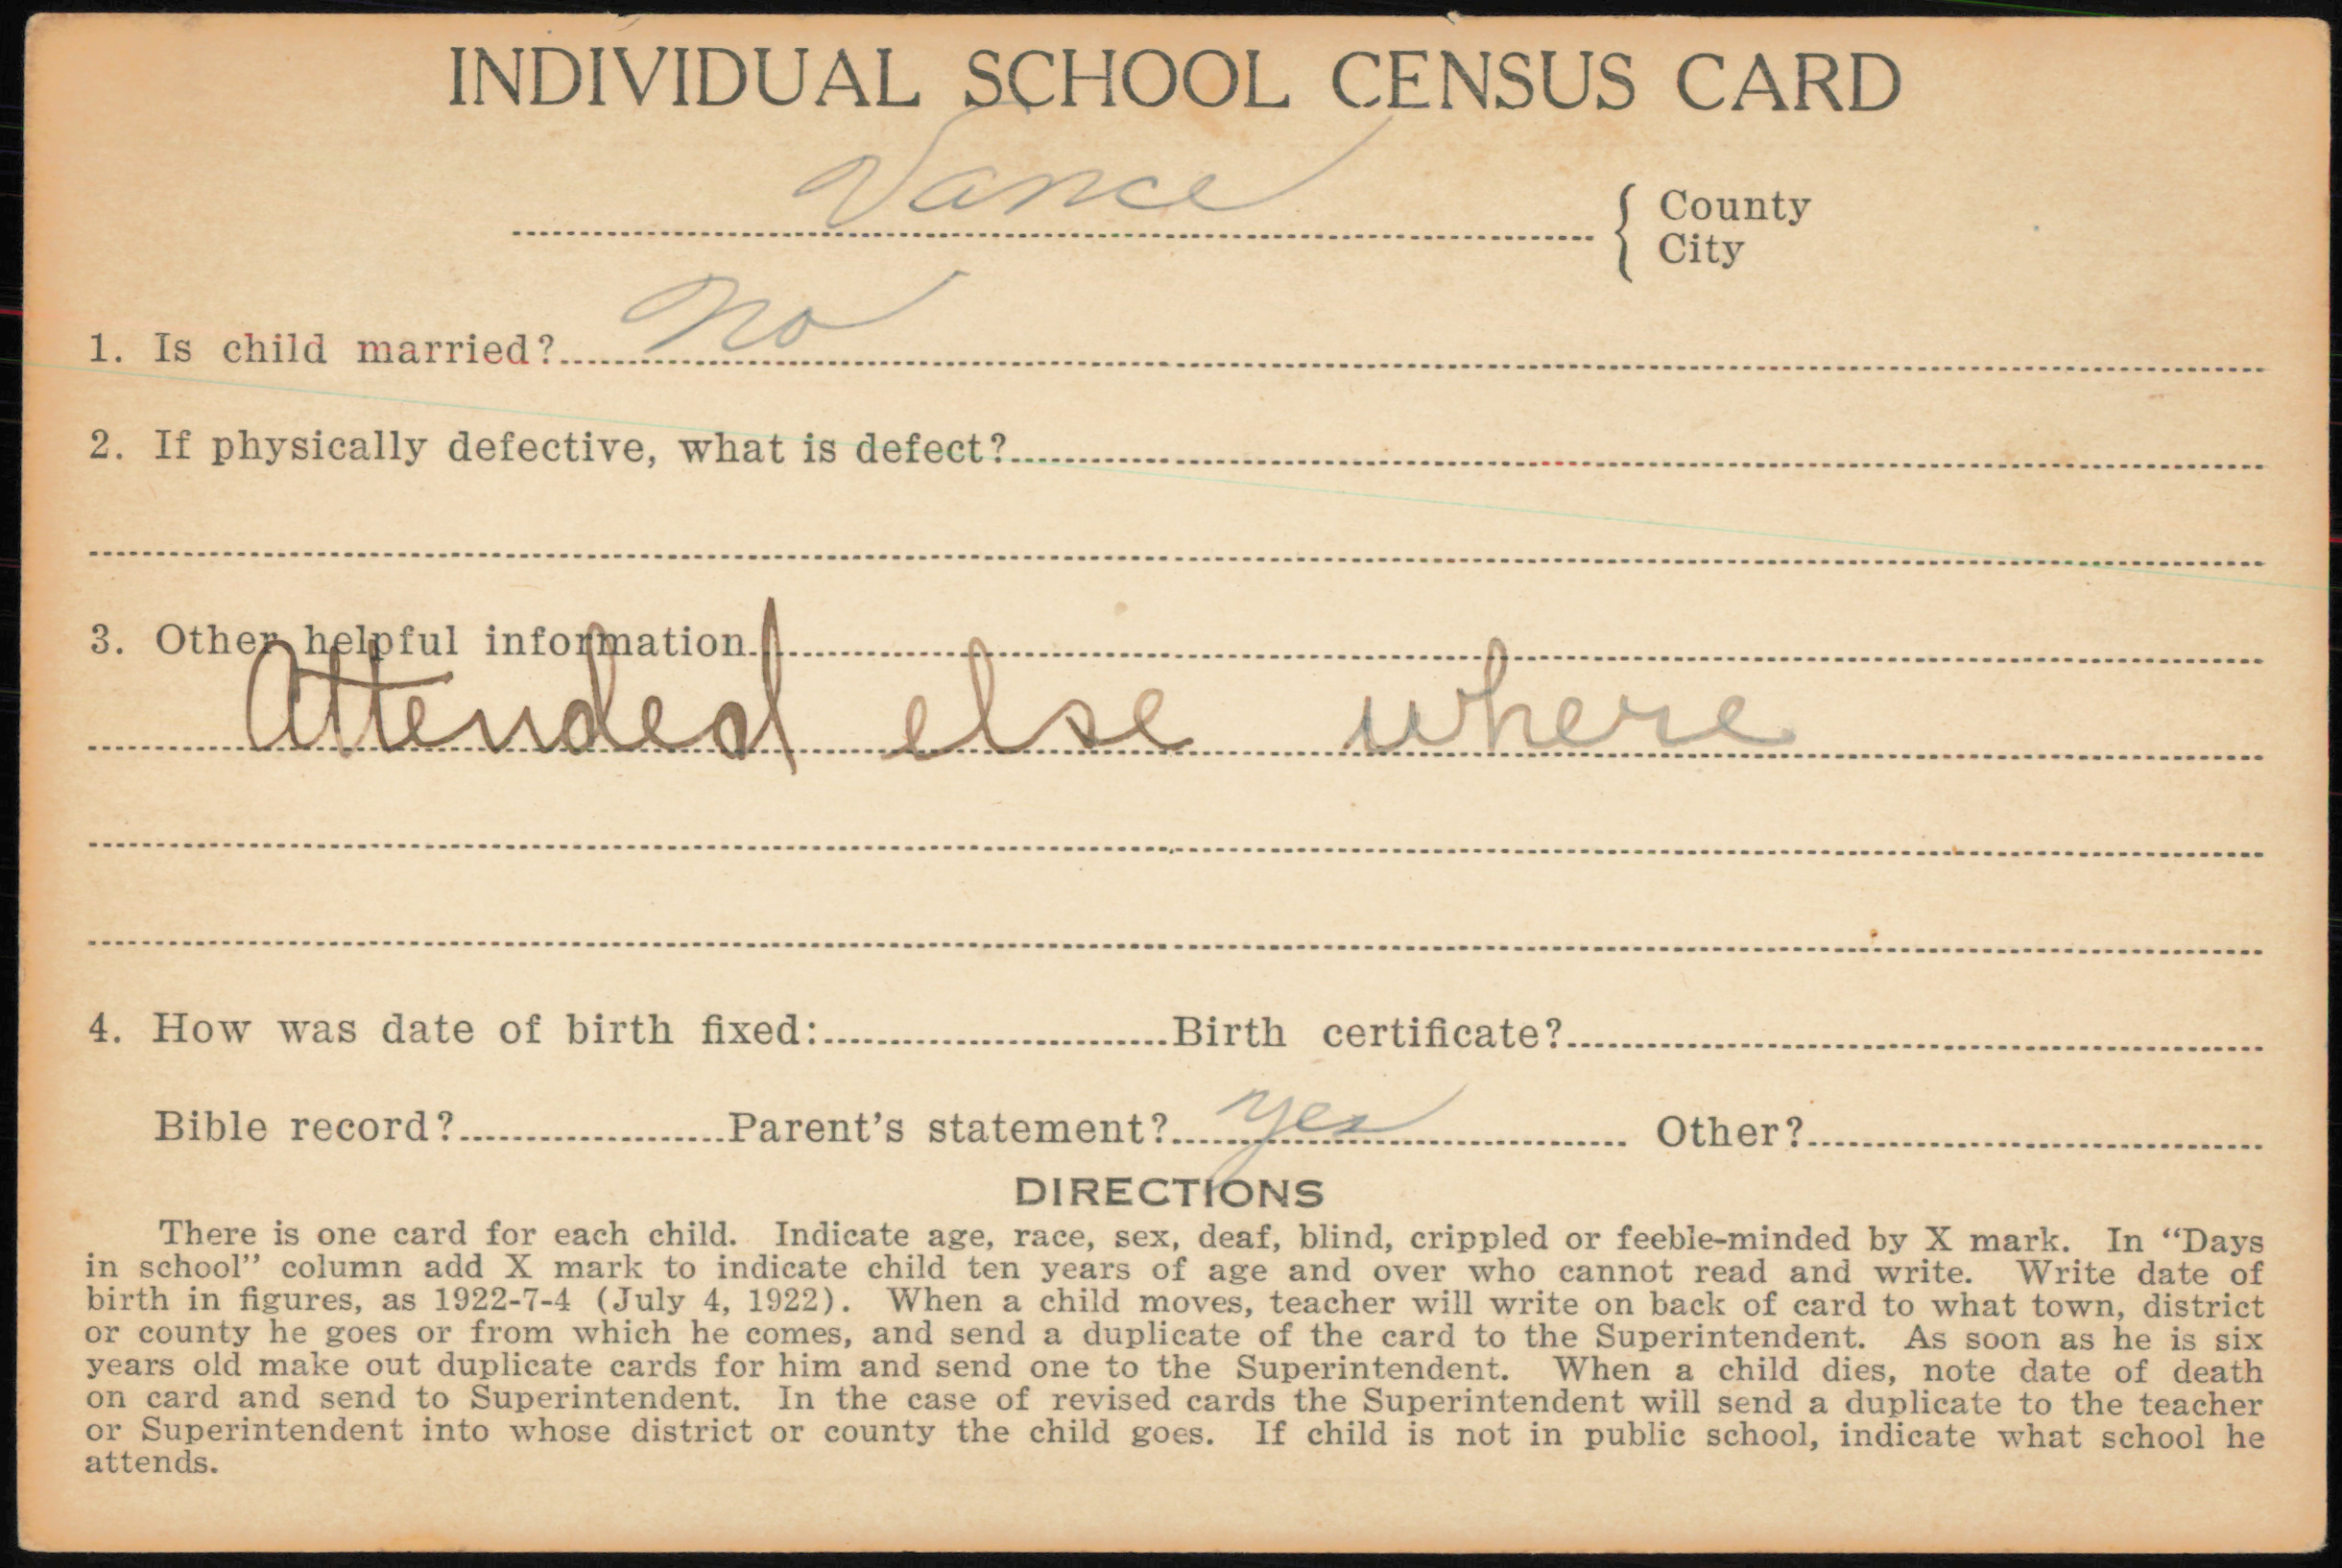 INDIVIDUAL SCHOOL CENSUS CARD
Vance
County
City
1. Is child married? No
2. If physically defective, what is defect?
3. Other helpful information
Attended else where
4. How was date of birth fixed: Birth certificate?
Bible record? Parent's statement? yes Other?
DIRECTIONS
There is one card for each child. Indicate age, race, sex, deaf, blind, crippled or feeble-minded by X mark. In “Days
in school” column add X mark to indicate child ten years of age and over who cannot read and write. Write date of
birth in figures, as 1922-7-4 (July 4, 1922). When a child moves, teacher will write on back of card to what town, district
or county he goes or from which he comes, and send a duplicate of the card to the Superintendent. As soon as he is six
years old make out duplicate cards for him and send one to the Superintendent. When a child dies, note date of death
on card and send to Superintendent. In the case of revised cards the Superintendent will send a duplicate to the teacher
or Superintendent into whose district or county the child goes. If child is not in public school, indicate what school he
attends.